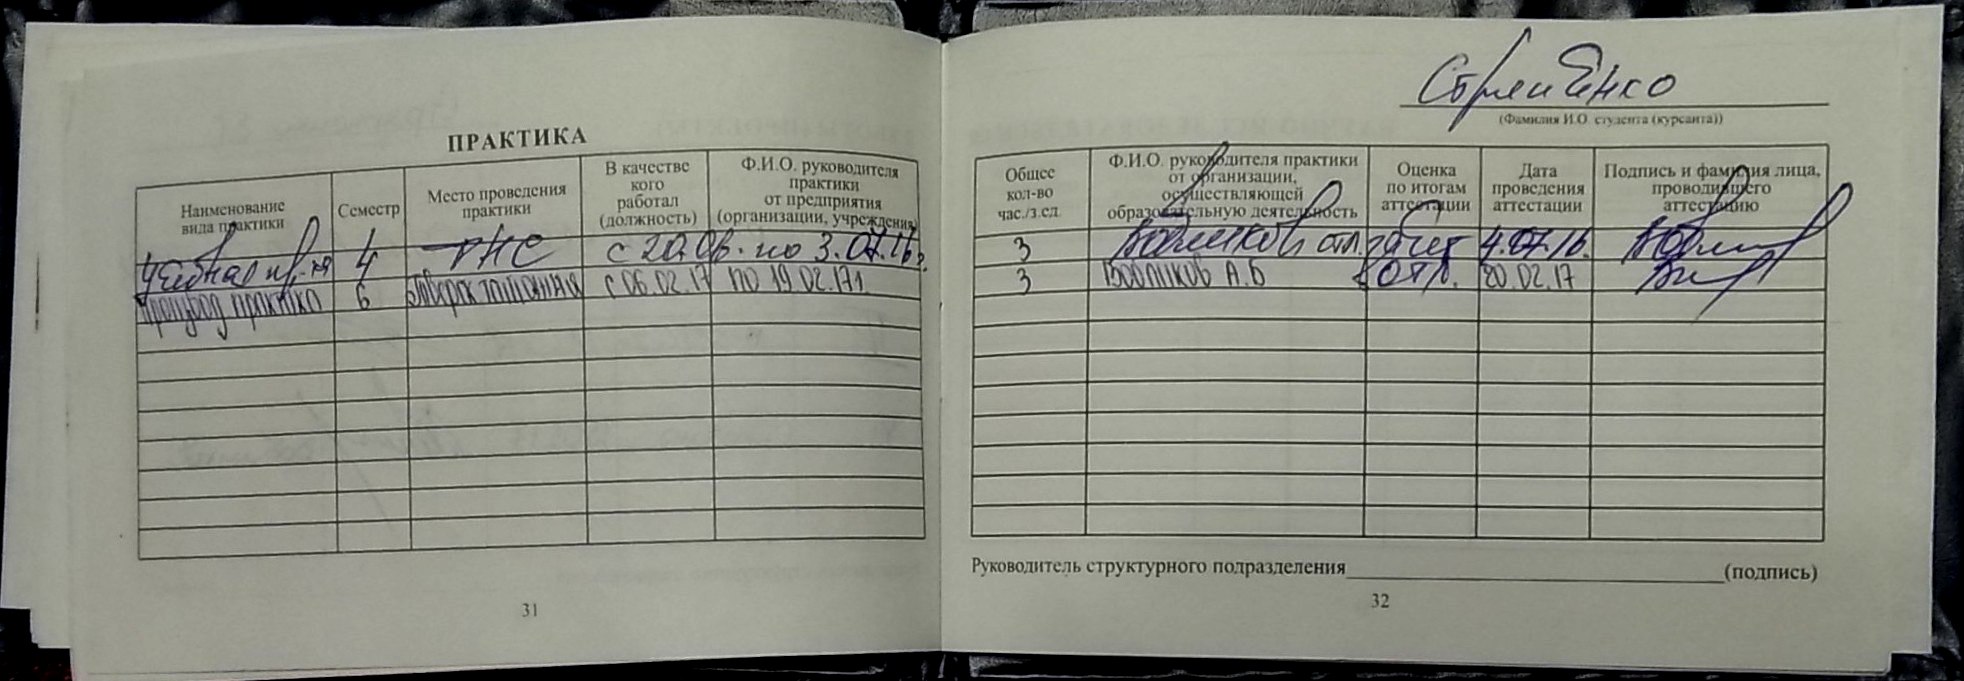 (Фамилия И.О. студента (курсанта))
ПРАКТИКА
Наименование вида практики
Семестр
Место проведения практики
В качестве кого работал (должность)
Ф.И.О. руководителя практики от предприятия (организации, учреждения)
Общее кол-во час./з.ед.
Ф.И.О. руководителя практики от организации, осуществляющей образовательную деятельность
Оценка по итогам аттестации
Дата проведения аттестации
Подпись и фамилия лица, проводившего аттестацию
Учебная пр-ка 4 РНС по 3.07.16г. 3 отл. 4.07.16.
Производ. практика 6 с 06.02.17 по 19.02.17г. 3 А.Б отл. 20.02.17
Руководитель структурного подразделения (подпись)
31
32